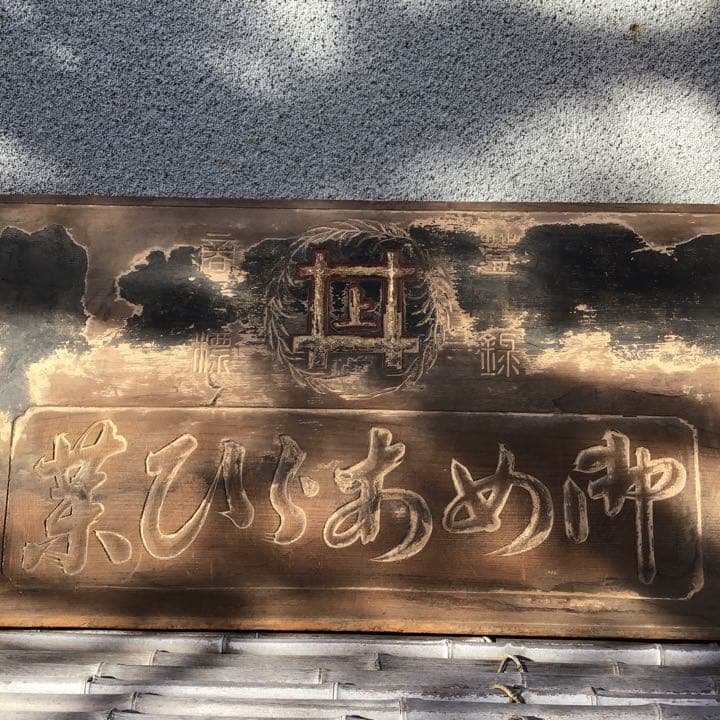 登録
上
商標
御めあらひ薬